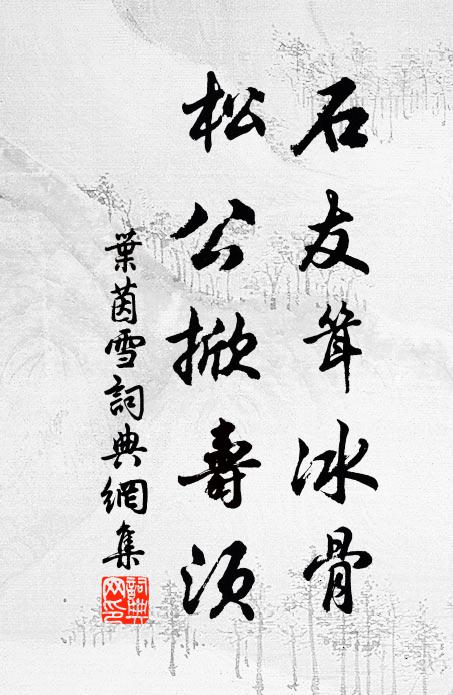 石友聳冰骨
松公掀壽須
葉茵雪詞典網集
詞典網印